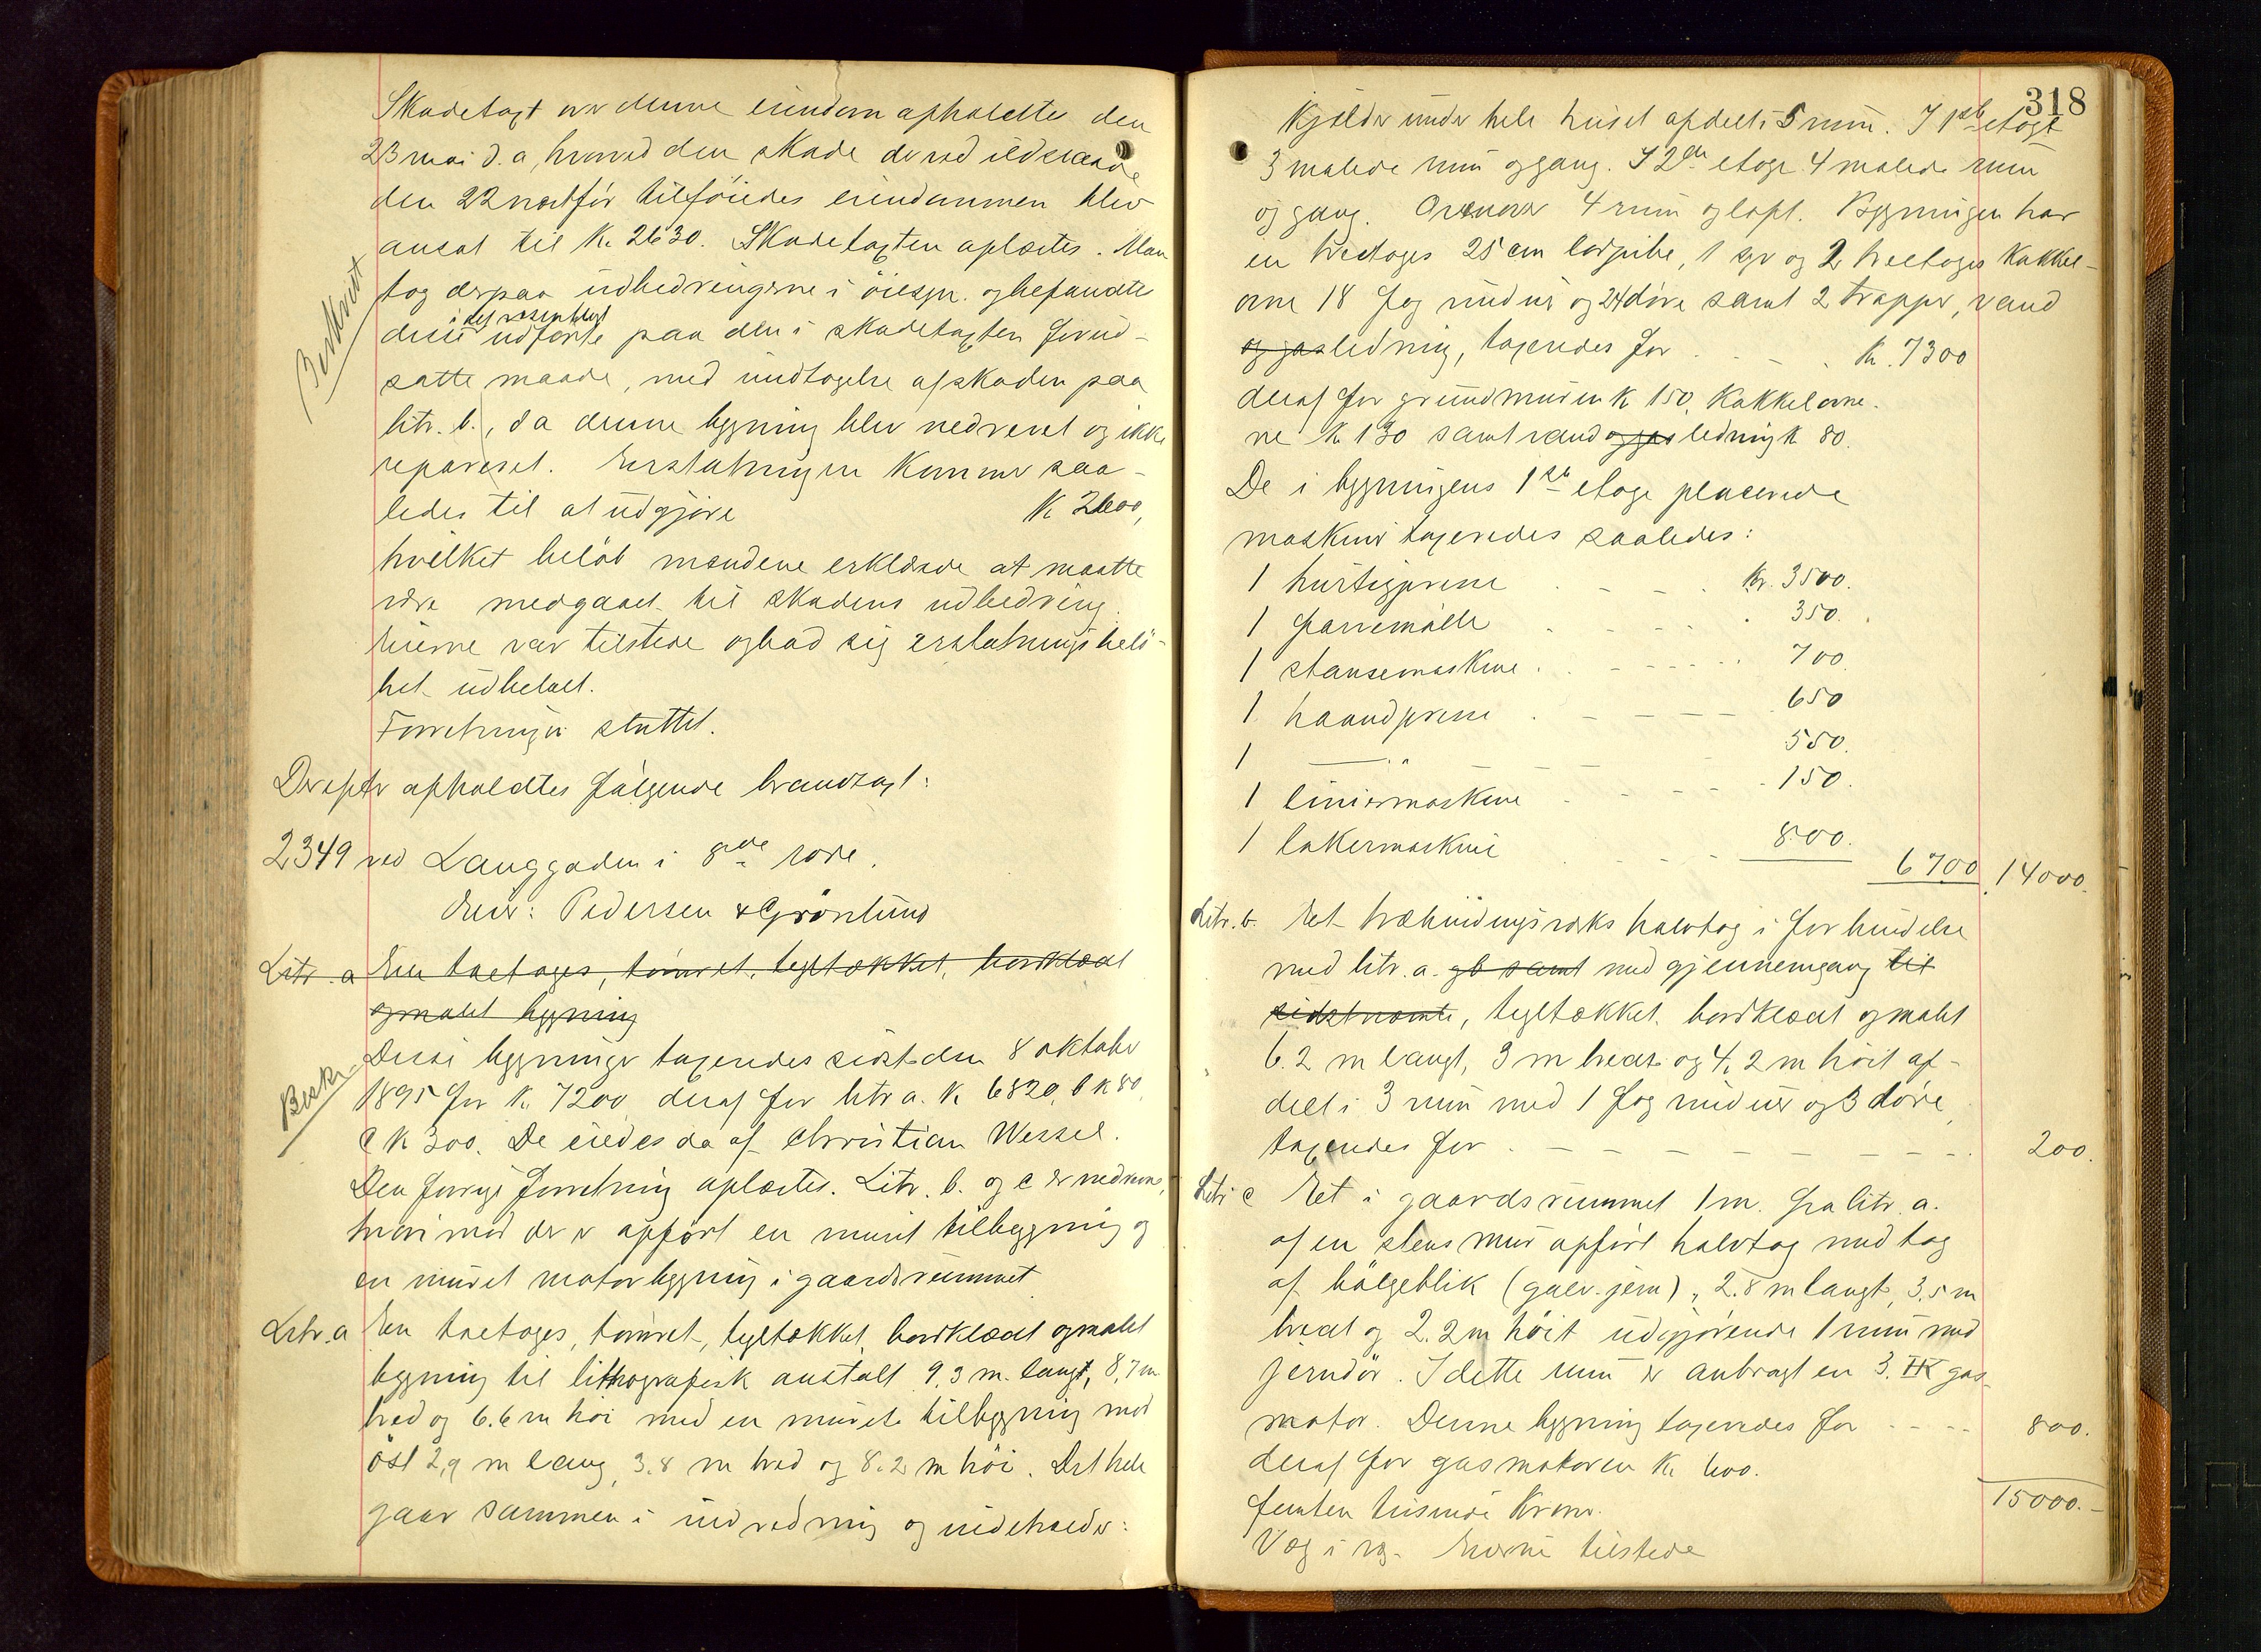 Skadetaxt over denne eiendom afholdtes den
23 mai d.a, hvorved den skade der ved ildsvaade
den 22 næstför tilföiedes eiendommen blev
ansat til Kr. 2630. Skadetaxten oplæstes. Man
tog derpaa udbedringerne i öiesyn og befandt
i det væsentligt
disse udförte paa den i skadetaxten forud-
satte maade, med undtagelse af skaden paa
litr. b., da denne bygning blev nedrevet og ikke
repareret. Erstatningen kommer saa-
ledes til at udgjöre K 2600,
hvilket belöb mændene erklærede at maatte
være medgaaet til skadens udbedring.
Eierne var tilstede og bad sig erstatningsbelö-
bet udbetalt.
Forretningen sluttet.
Derefter afholdtes fölgende brandtaxt:
2349 ved Langgaden i 8de rode.
Eier: Pedersen & Grönlund
Litr. a En toetages, tömret, tegltækket, bordklædt
og malet bygning
Beskr.
Disse bygninger taxeredes sidst den 8 oktober
1895 for K. 7200, deraf for litr a. K. 6820, b K 80,
c K 300. De eiedes da af Christian Wessel.
Den forrige forretning oplæstes. Litr. b. og c er nedrevne,
hvorimod der er opfört en muret tilbygning og
en muret motorbygning i gaardsrummet
Litr. a En toetages, tömret, tegltækket, bordklædt og malet
bygning til lithografisk anstalt 9,3 m. langt, 8,7 m
bred og 6.6 m höi med en muret tilbygning mod
öst 2,9 m lang, 3.8 m bred og 8.2 m höi. Det hele
gaar sammen i indredning og indeholder:
318
Kjælder under hele huset afdelt i 5 rum. I 1ste etage
3 malede rum og gang. I 2den etage 4 malede rum
og gang. Ovenover 4 rum og loft. Bygningen har
en treetages 25 cm lorpibe, 1 spr og 2 treetages kakkel-
ovne 18 fag vinduer og 24 döre samt 2 trapper, vand
og gasledning, taxeredes for . - - . Kr. 7300
deraf for grundmuren K 150, kakkelovne-
ne K 130 samt vand og gas ledning K 80.
De i bygningens 1ste etage placerede
maskiner taxeredes saaledes:
1 hurtigpresse . - - . Kr. 3500.
1 farvemölle . - - . 350.
1 stansemaskine . - - - 700.
1 haandpresse . - - - 650
1 — " — - - - 550.
1 liniermaskine . - - - 150.
1 lakermaskine . - - - 800.
6700 14000.
Litr. b. Et træbindingsværks halvtag i forbindelse
med litr. a. gb samt med gjennemgang til
sidstnævnte, tegltækket, bordklædt og malet
6.2 m langt, 3 m bredt og 4,2 m höit af-
delt i 3 rum med 1 fag vinduer og 3 döre,
taxeredes for . - - - - - - - - . 200.
Litr c Et i gaardsrummet 1 m. fra litr. a.
af en stens mur opfört halvtag med tag
af bölgeblik (galv. jern), 2.8 m langt, 3.5 m
bredt og 2.2 m höit udgjörende 1 rum med
jerndör. I dette rum er anbragt en 3. HK gas-
motor. Denne bygning taxeredes for - - - - 800.
deraf for gasmotoren K. 600.
15000.-
femten tusinde Kroner.
V og i vg. Eierne tilstede